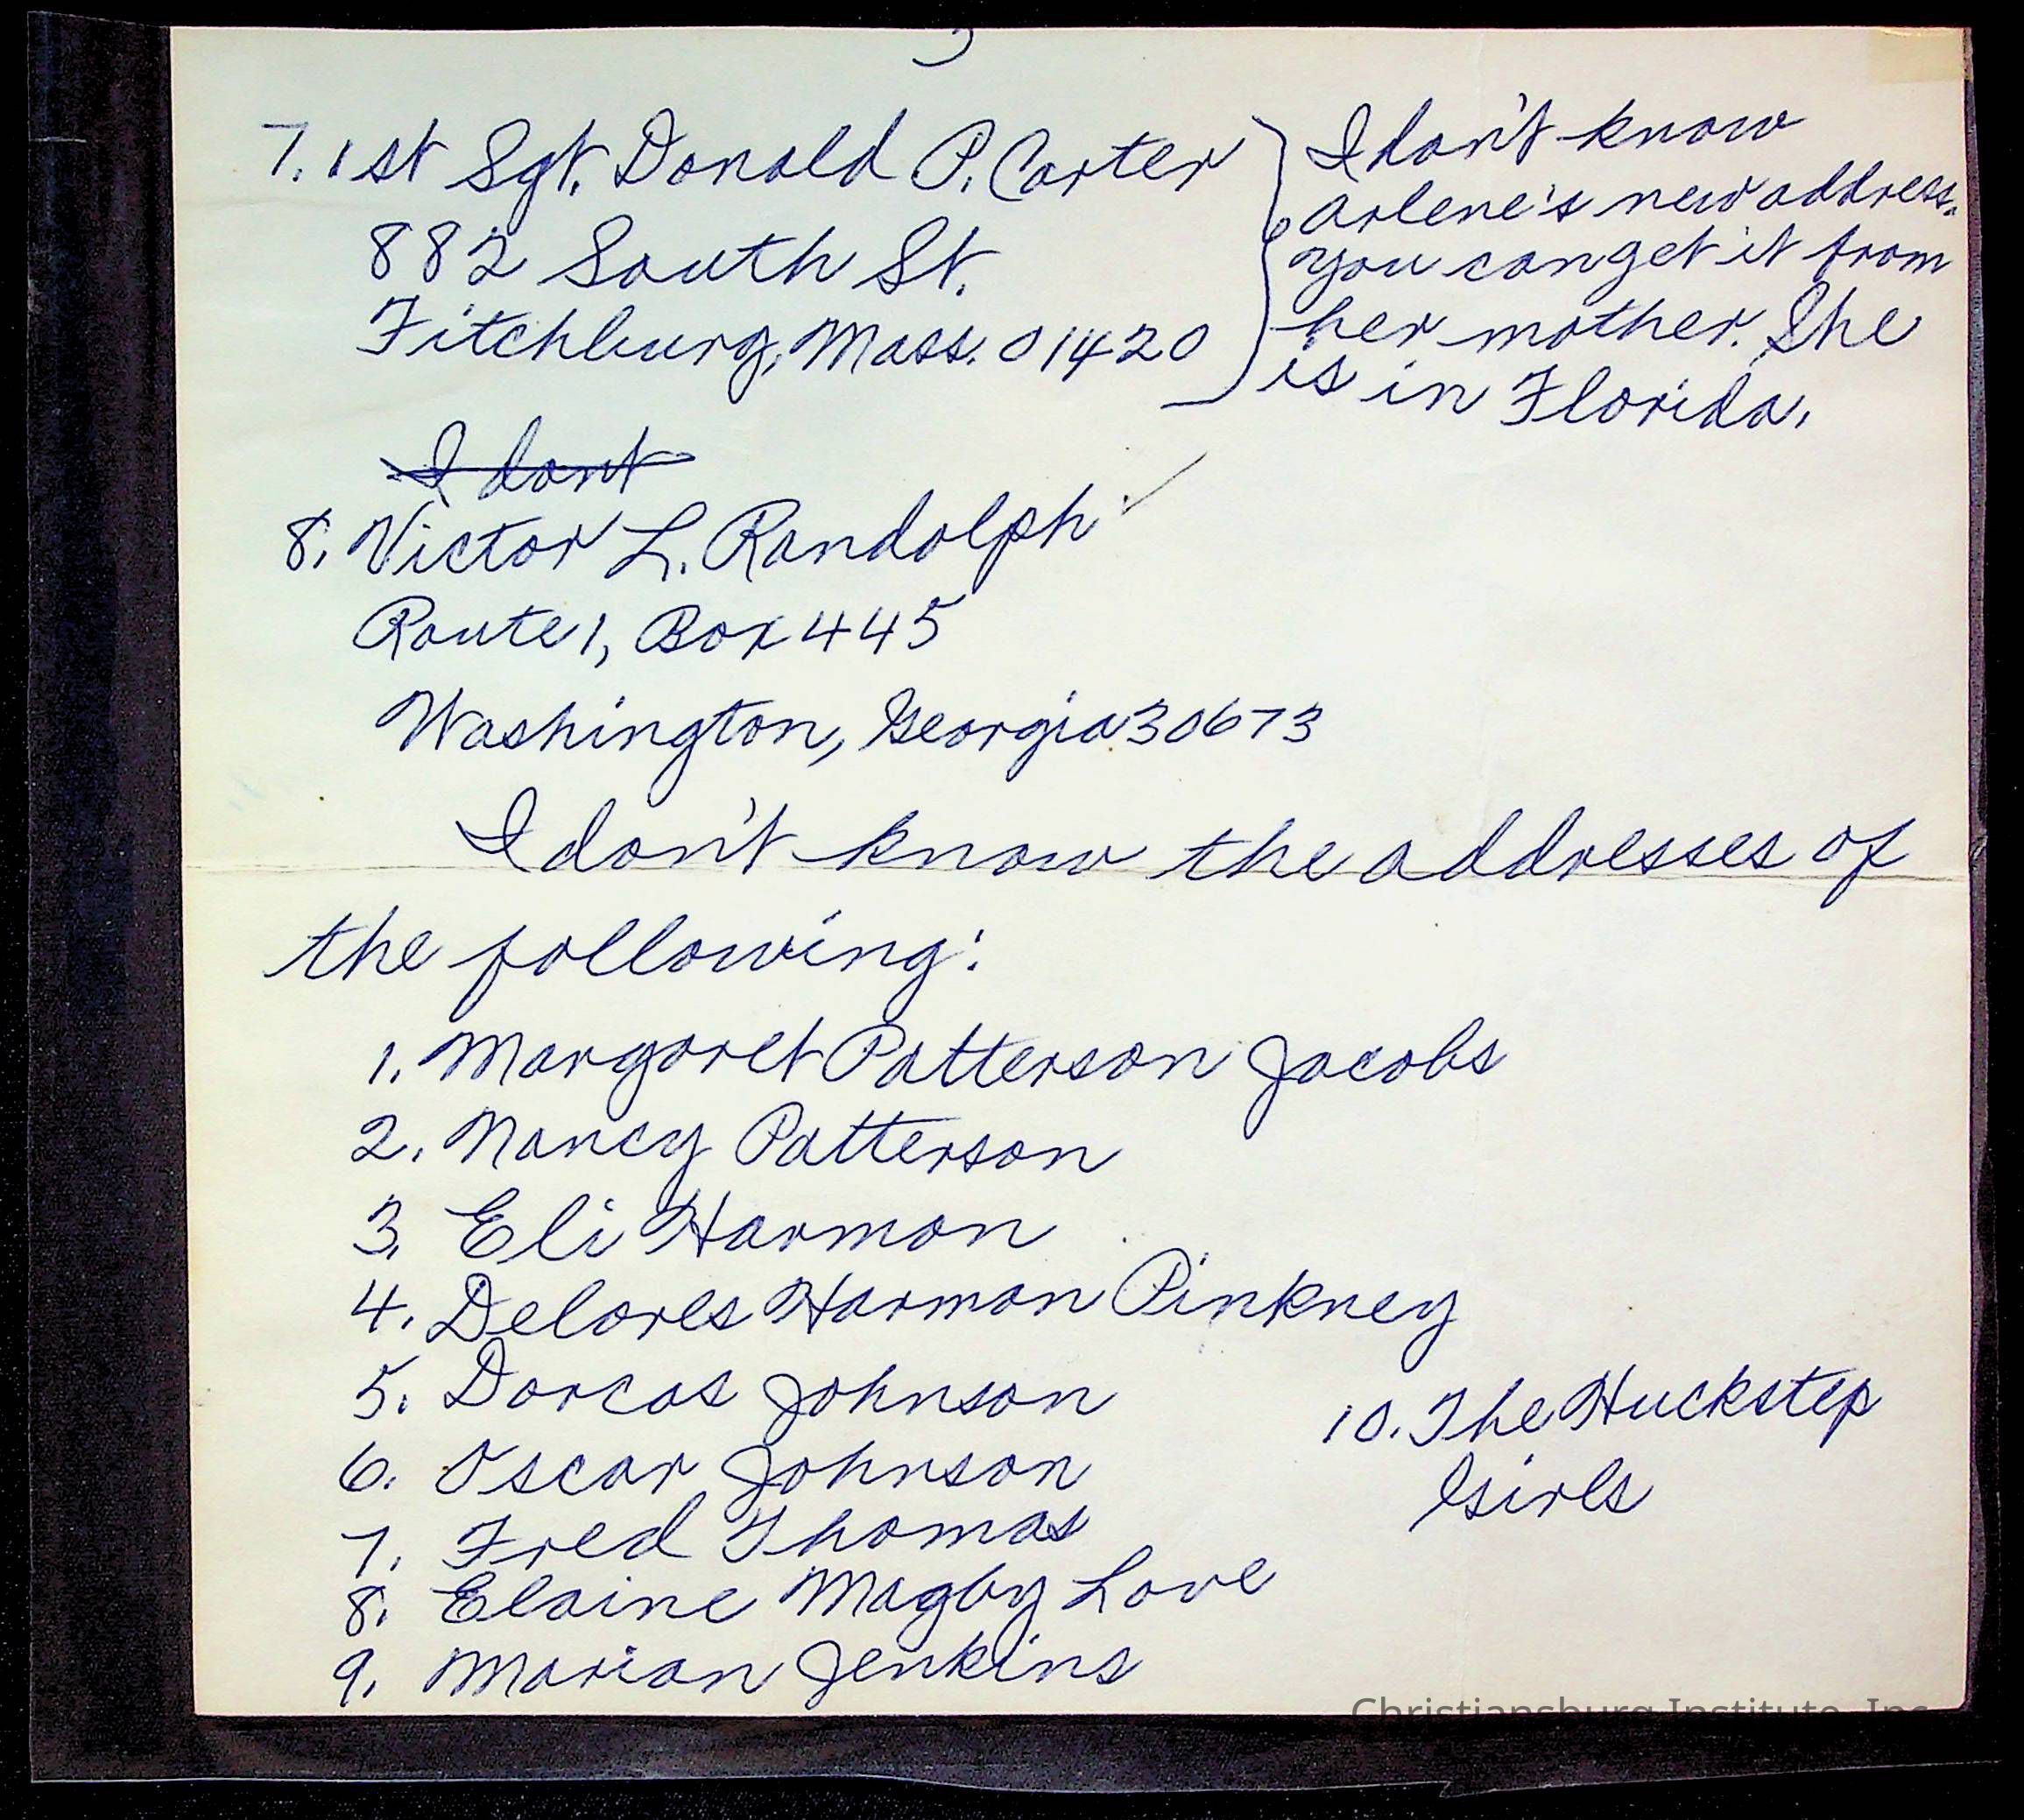 7. 1st Sgt. Donald P. Carter
882 South St.
Fitchburg, Mass. 01420
I don't know
Arlene's new address.
You can get it from
her mother. She
is in Florida.
I dont
8. Victor L. Randolph ✓
Route 1, Box 445
Washington, Georgia 30673
I don't know the addresses of
the following:
1. Margaret Patterson Jacobs
2. Nancy Patterson
3. Eli Harmon
4. Delores Harmon Pinkney
5. Dorcas Johnson
6. Oscar Johnson
7. Fred Thomas
8. Elaine Magby Love
9. Marian Jenkins
10. The Huckstep
Girls
Christiansburg Institute, Inc.